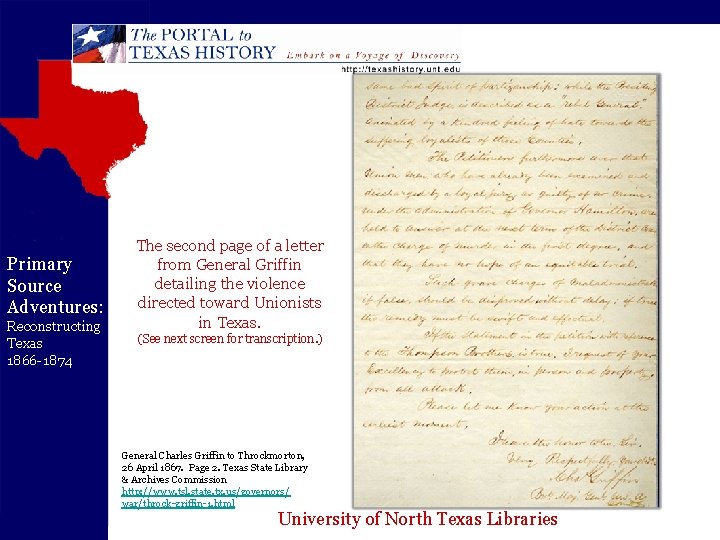 The PORTAL to
TEXAS HISTORY
Embark on a Voyage of Discovery
http://texashistory.unt.edu
Primary
Source
Adventures:
Reconstructing
Texas
1866-1874
The second page of a letter
from General Griffin
detailing the violence
directed toward Unionists
in Texas.
(See next screen for transcription.)
General Charles Griffin to Throckmorton,
26 April 1867. Page 2. Texas State Library
& Archives Commission
http://www.tsl.state.tx.us/governors/
war/throck-griffin-1.html
same bad spirit of partizanship: while the Presiding
District Judge is described as a "rebel General"
animated by a kindred feeling of hate towards the
suffering loyalists of those Counties.
The Petitioners furthermore aver that
Union men who have already been examined and
discharged by a loyal jury as guilty of no crime,
under the administration of Governor Hamilton, are
held to answer at the next term of the district Court
the charge of murder in the first degree, and
that they have no hope of an equitable trial.
Such grave charges of maladministration
if false, should be disproved without delay: if true
the remedy must be swift and effectual.
If the statement in the petition with reference
to the Thompson Brothers is true, I request of your
Excellency to protect them, in person and property,
from all attack.
Please let me know your action at the
earliest moment.
I have the honor to be, Sir,
Very Respectfully,
Chas Griffin
Bvt Maj Genl U.S.A.
University of North Texas Libraries